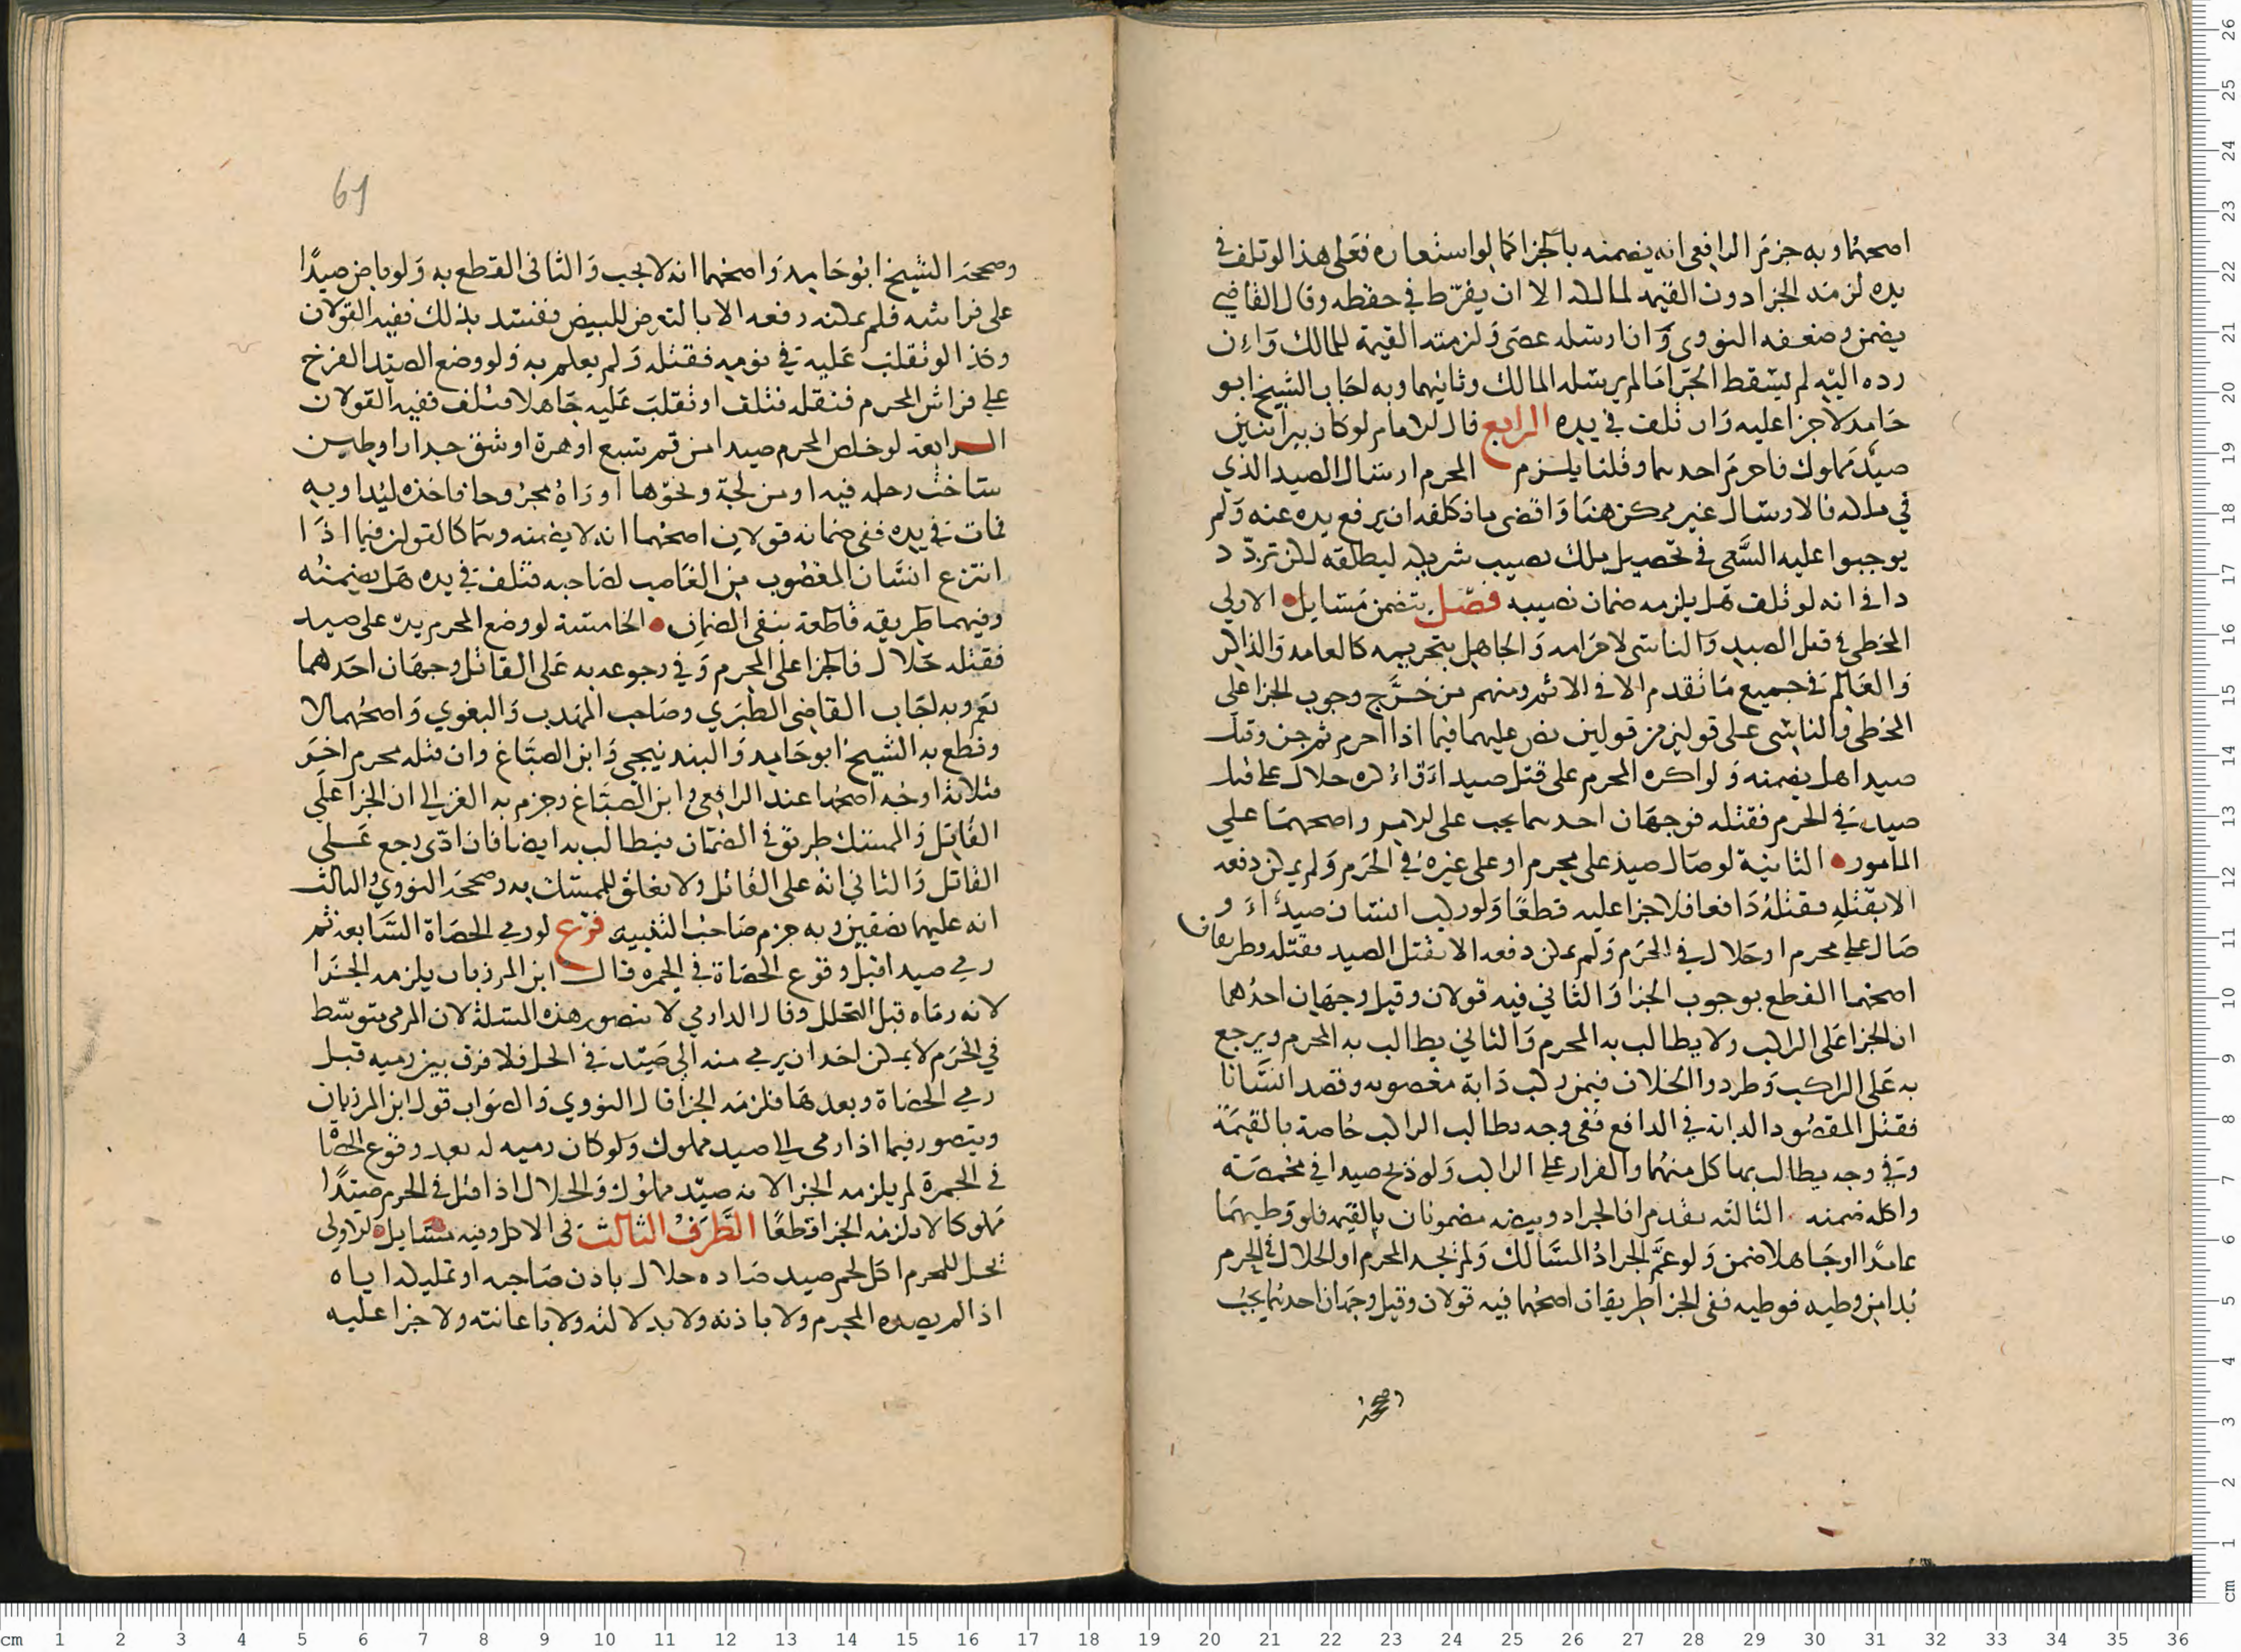 اصحهما وبه جزم الرافعي انه يضمنه بالجزا كما لو استعاره فعلى هذا لو تلف في
يده لزمه الجزا دون القيمه لمالكه الا ان يفرّط في حفظه وقال القاضي
يضمن وضعفه النووي وَان ارسله عصَى وَلزمته القيمة للمالك وَاِن
رده اليه لم يسقط الجزا مَا لم يرسله المالك وثانيهما وبه اجَاب الشيخ ابو
حَامد لاجزا عليه وَان تلف في يده الرابع قال الامام لو كان بين اثنين
صيد مملوك فاحرم احدهما وقلنا يلزم المحرم ارسال الصيد الذي
في ملكه فالارسال غير ممكن هنا وَاقصى مانكلفه ان يرفع يده عنه وَلم
يوجبوا عليه السَّعي في تحصيل ملك نصيب شريكه ليطلقه لكن تردّد
دا في انه لو تلف هَل يلزمه ضمان نصيبه فصل يتضمن مَسايل الاولي
المخطي في قتل الصيد وَالناسي لاحرامه وَالجاهل بتحريمه كالعامد وَالذاكر
وَالعَالم في جميع مَا تقدم الا في الاثم ومنهم من خَرَّج وجوب الجزا علَي
المخطي والناسي على قولين من قولين نص عليهما فيما اذا احرم ثم جن وقتل
صيدا هل يضمنه وَلو اكره المحرم على قتل صيد اَوْ اُكره حلال على قتل
صيد في الحرم فقتله فوجهَان احدهما يجب على الامر واصحهمَا علي
المامور الثانية لو صَال صيد على محرم او على غيره في الحَرم وَلم يمكن دفعه
الا بقتله فقتله دَافعا فلا جزا عليه قطعًا وَلو ركب انسَان صيدًا وَ
صَال علي محرم او حَلال في الحَرم وَلم يمكن دفعه الا بقتل الصيد فقتله وطريقان
اصحهما القطع بوجوب الجزا وَالثاني فيه قولان وقيل وجهَان احدُهما
ان الجزا علَى الراكب ولا يطالب به المحرم وَالثاني يطالب به المحرم ويرجع
به عَلى الراكب وَطردوا الخلاف فيمن ركب دَابة مغصوبه وقصد انسَانا
فقتل المقصُود الدابة في الدافع ففي وجه يطالب الراكب خَاصة بالقيمَة
وَفي وجه يطالب بها كل منهُما والقرار علي الراكب وَلو ذبح صيدا في مخمصَته
واكله ضمنه الثالثه تقدم ان الجراد وبيضه مضمونان بالقيمه فلو وطيهمَا
عامدًا او جَاهلا ضمن وَلو عمَّ الجرادُ المسَالك وَلم يجد المحرم او الحلال في الحرم
بُدا من وطيه فوطيه ففي الجزا طريقان اصحُهما فيه قولان وقيل وجهان احدهُما يجب
وصححه
61
وصححه الشيخ ابُو حَامد وَاصحهما انه لا يجب وَالثاني القطع به وَلو باض صيدًا
على فراشه فلم يمكنه دفعه الا بالتعرض للبيض ففسد بذلك ففيه القولان
وكذا لو تقلب عَليه في نومه فقتله وَلم يعلم به وَلو وضع الصيد الفرخ
علي فراش المحرم فنقله فتلف او تقلبَ عَليه جَاهلا فتلف ففيه القولان
الرابعة لو خلص المحرم صيدا من فم سَبع او هرة او شق جدار او طين
ساخت رجله فيه او من لجّة ونحوها او رَاه مجرُوحا فاخذه ليُداويه
فمات في يده ففي ضمانه قولان اصحهما انه لا يضمنه وهمَا كالقولين فيما اذَا
انتزع انسَان المغصُوب من الغَاصب لصَاحبه فتلف في يده هَل يضمنُه
وفيهما طريقه قاطعة بنفي الضمان الخَامسة لو وضع المحرم يده على صيد
فقتله حَلال فالجزا علي المحرم وَفي رجوعه به عَلى القاتل وجهَان احَدهما
نعَم وبه اجَاب القاضي الطبَري وصَاحب المهذب وَالبغوي وَاصحُهما لا
وقطع به الشيخ ابو حَامد وَالبندنيجي وَابن الصبَّاغ وان قتله محرم اخَر
فثلاثة اوجُه اصحُها عند الرافعي وابن الصبَّاغ وجزم به الغزالي ان الجزا علَي
القاتل وَالممسك طريق في الضمَان فيطالب به ايضا فان ادّى رجع عَلي
القاتل وَالثاني انه على القاتل ولا تعلق للممسك به وصححه النووي وَالثالث
انه عليهما نصفين وبه جزم صَاحبُ التنبيه فرع لو رمي الحصَاة السَّابعة ثم
رمي صيدا قبل وقوع الحصَاة في الجمره قال ابن المرزبان يلزمه الجَزا
لانه رمَاه قبل التحلل وقال الدارمي لا يتصور هذه المسئلة لان المرمى متوسّط
في الحَرم لا يمكن احَدا ان يرمي منه الي صَيد في الحل فلا فرق بين رميه قبل
رمي الحصَاة وبعدهَا فلزمَه الجزا قال النووي وَالصَواب قول ابن المرزبان
ويتصور فيما اذا رمى الي صيد مملوك وَلو كان رميه له بعد وقوع الحصَاة
في الجمرة لم يلزمه الجزا لانه صيد مملوك وَالحلال اذا قتل في الحرم صيدًا
مَملوكا لا يلزمُه الجزا قطعًا الطَّرفُ الثالث في الاكل وفيه مَسَايل الاولى
يحل للمحرم اكل لحم صيد صَاده حلال باذن صَاحبه او تمليكه اياه
اذا لم يصيده المحرم ولا باذنه ولا بدلالته ولا باعانته ولا جزا عليه